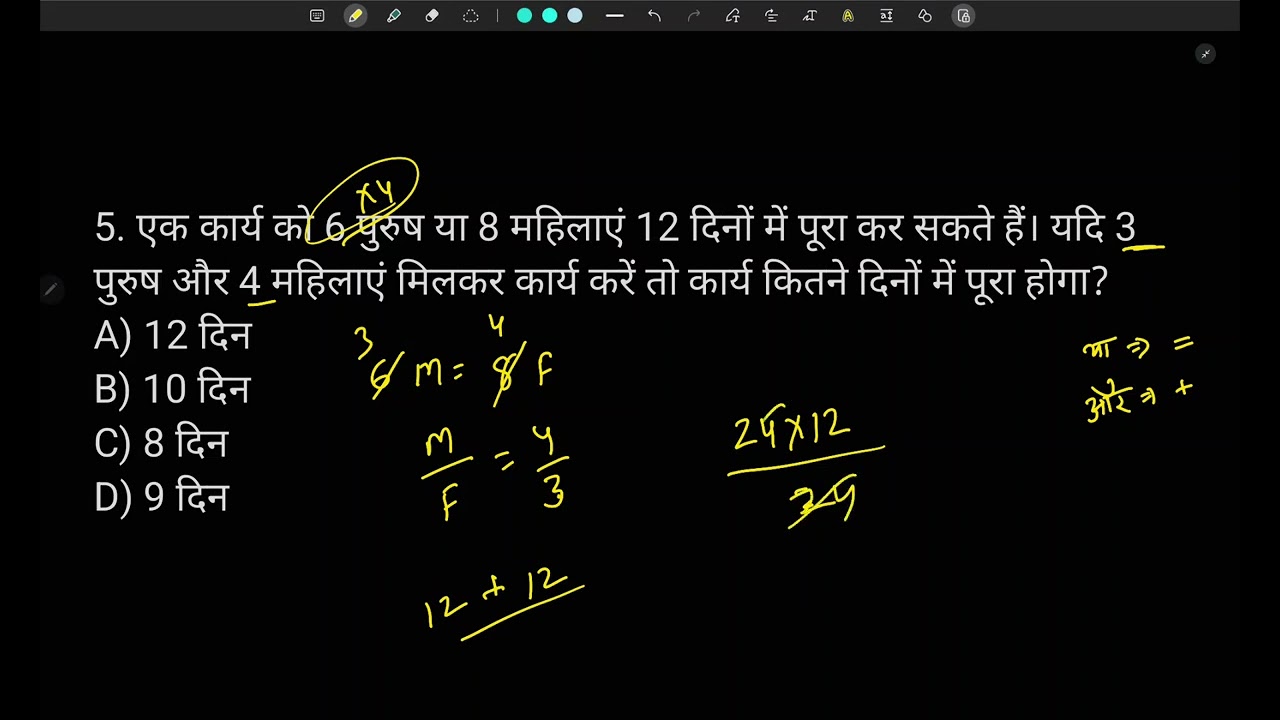 ×4
5. एक कार्य को 6 पुरुष या 8 महिलाएं 12 दिनों में पूरा कर सकते हैं। यदि 3
पुरुष और 4 महिलाएं मिलकर कार्य करें तो कार्य कितने दिनों में पूरा होगा?
A) 12 दिन
B) 10 दिन
C) 8 दिन
D) 9 दिन
3 4
6 M = 8 F
M/F = 4/3
12 + 12
24×12
24
या ⇒ =
और ⇒ +